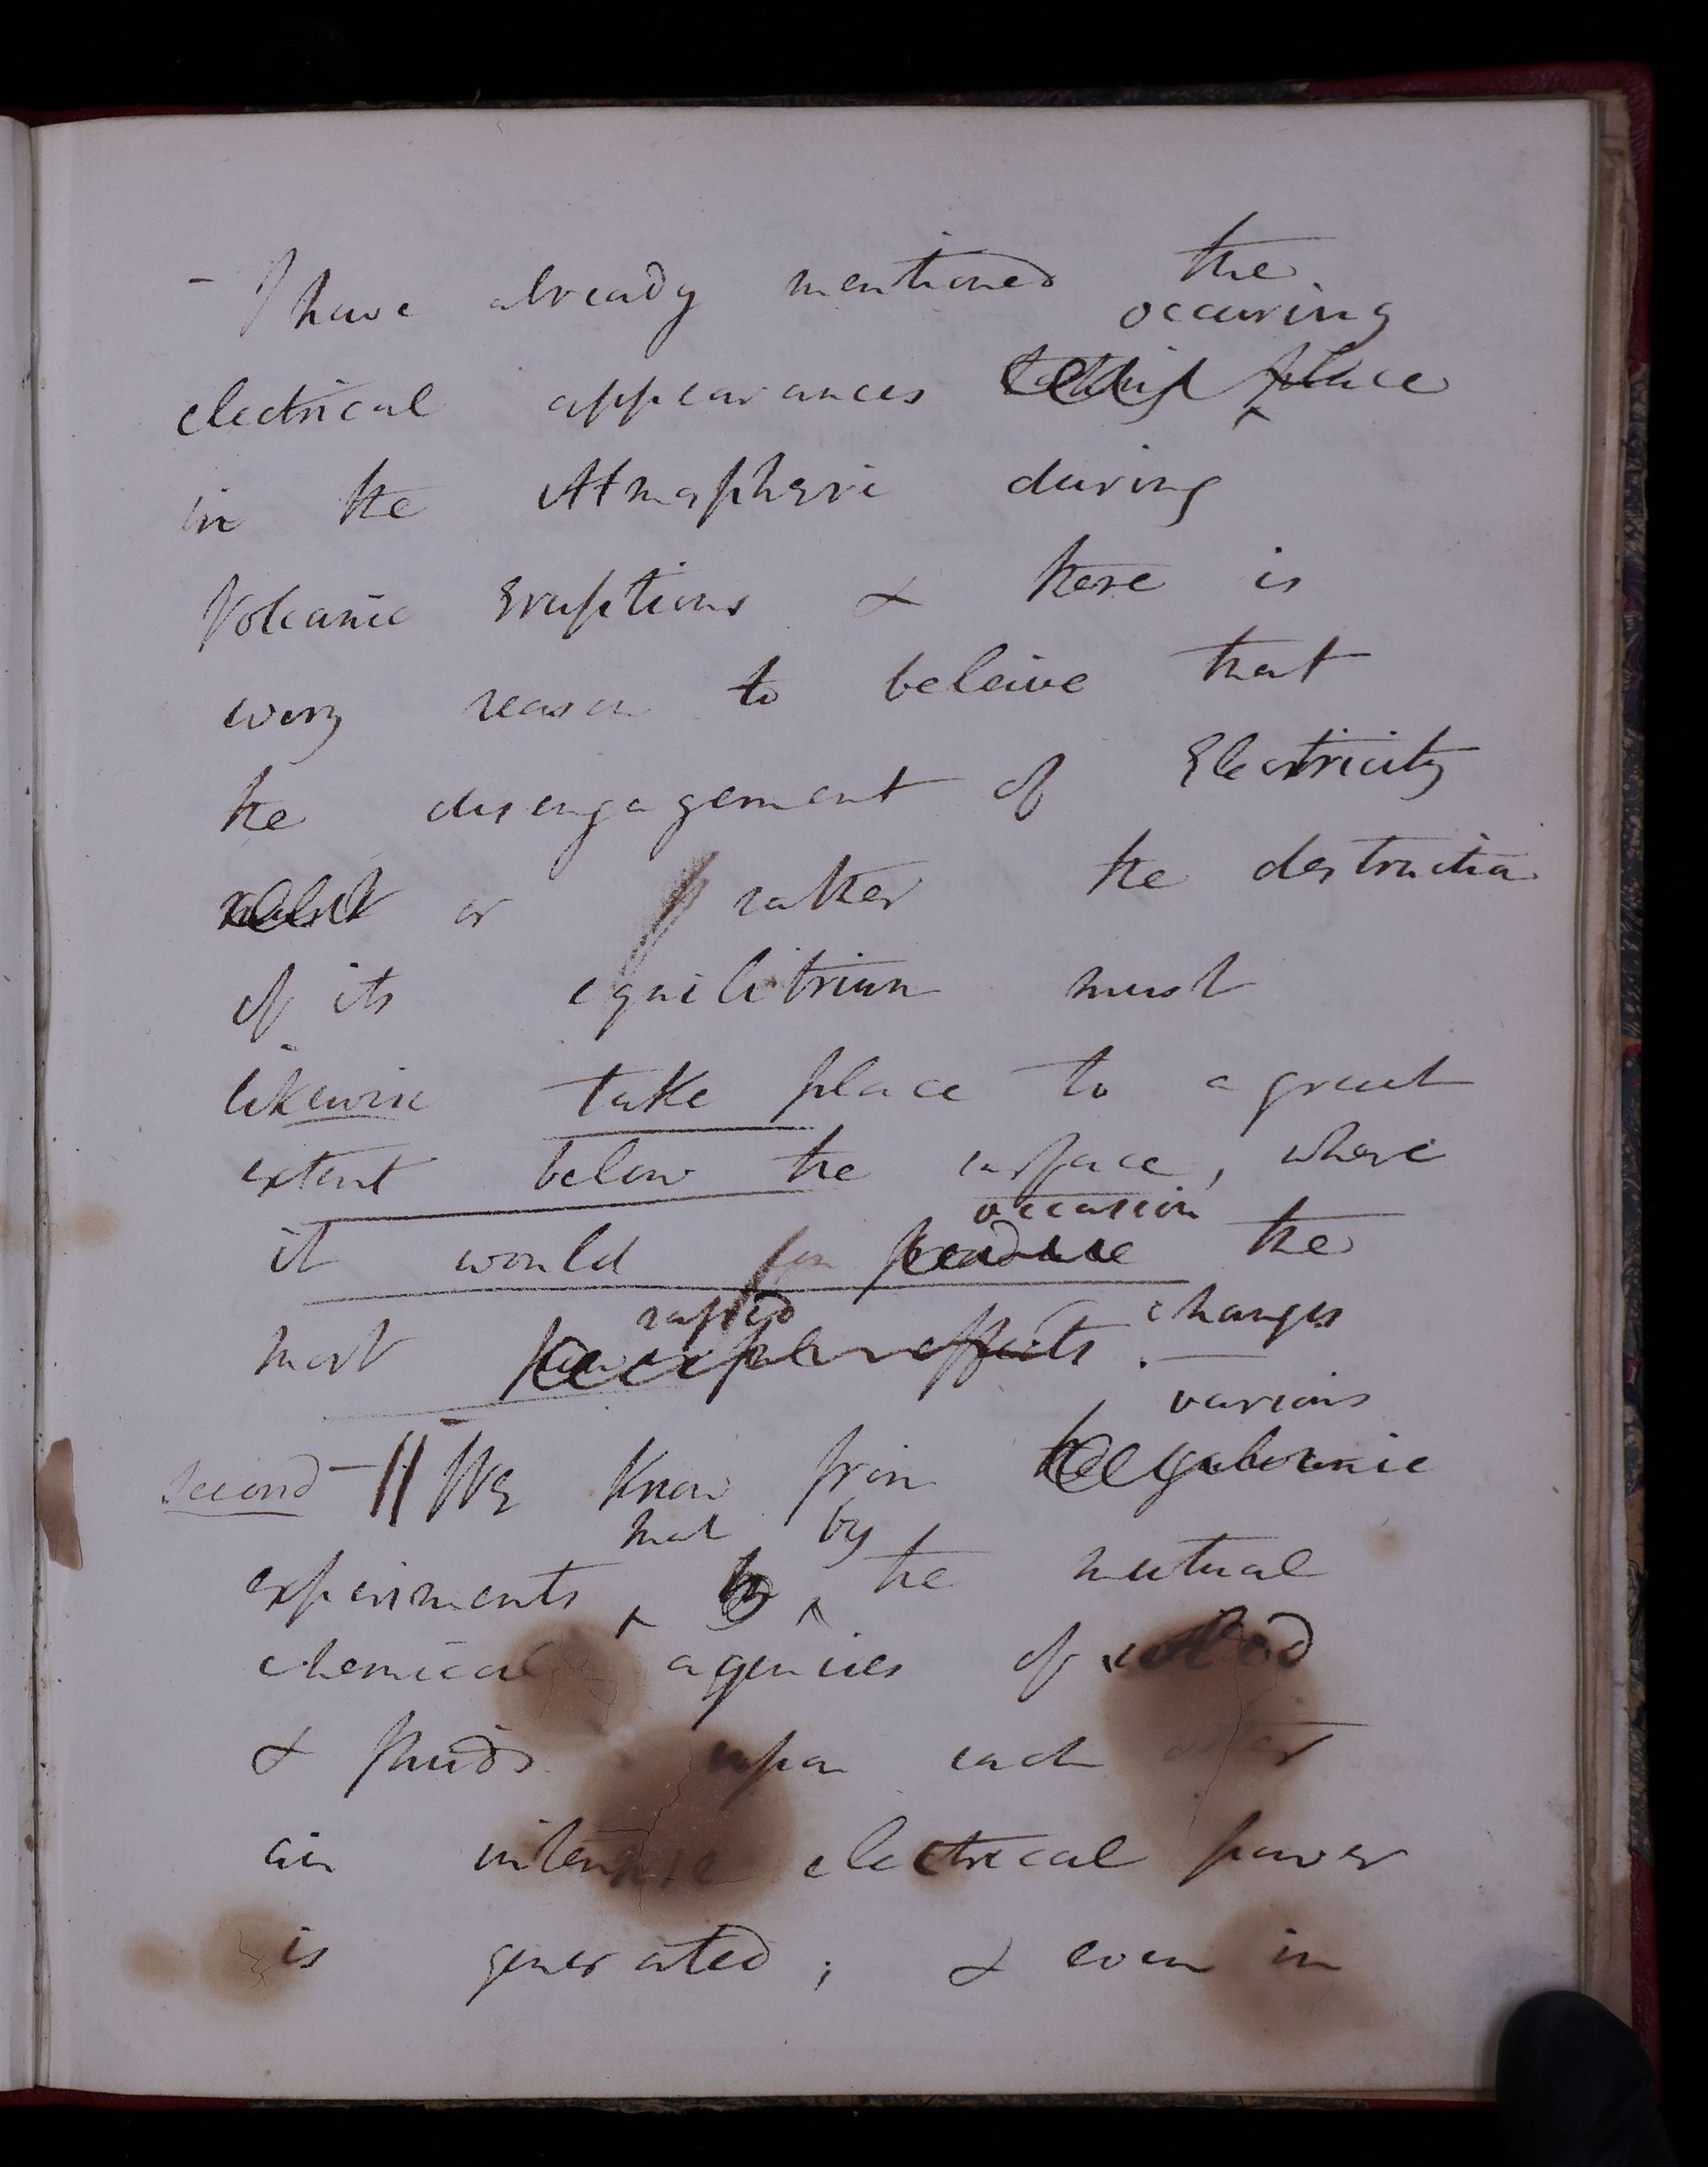 - I have already mentioned the
occuring
electrical appearances taking place
in the Atmosphere during
Volcanic Eruptions & there is
every reason to beleive that
the disengagement of Electricity
or rather the destruction
of its equilibrium must
likewise take place to a great
extent below the surface, where
occasion
it would produce the
rapid changes
most effects.
various
Second - // We know from the galvanic
that by
experiments the mutual
chemical agencies of
& fluids upon each other
an intense electrical power
is generated; & even in